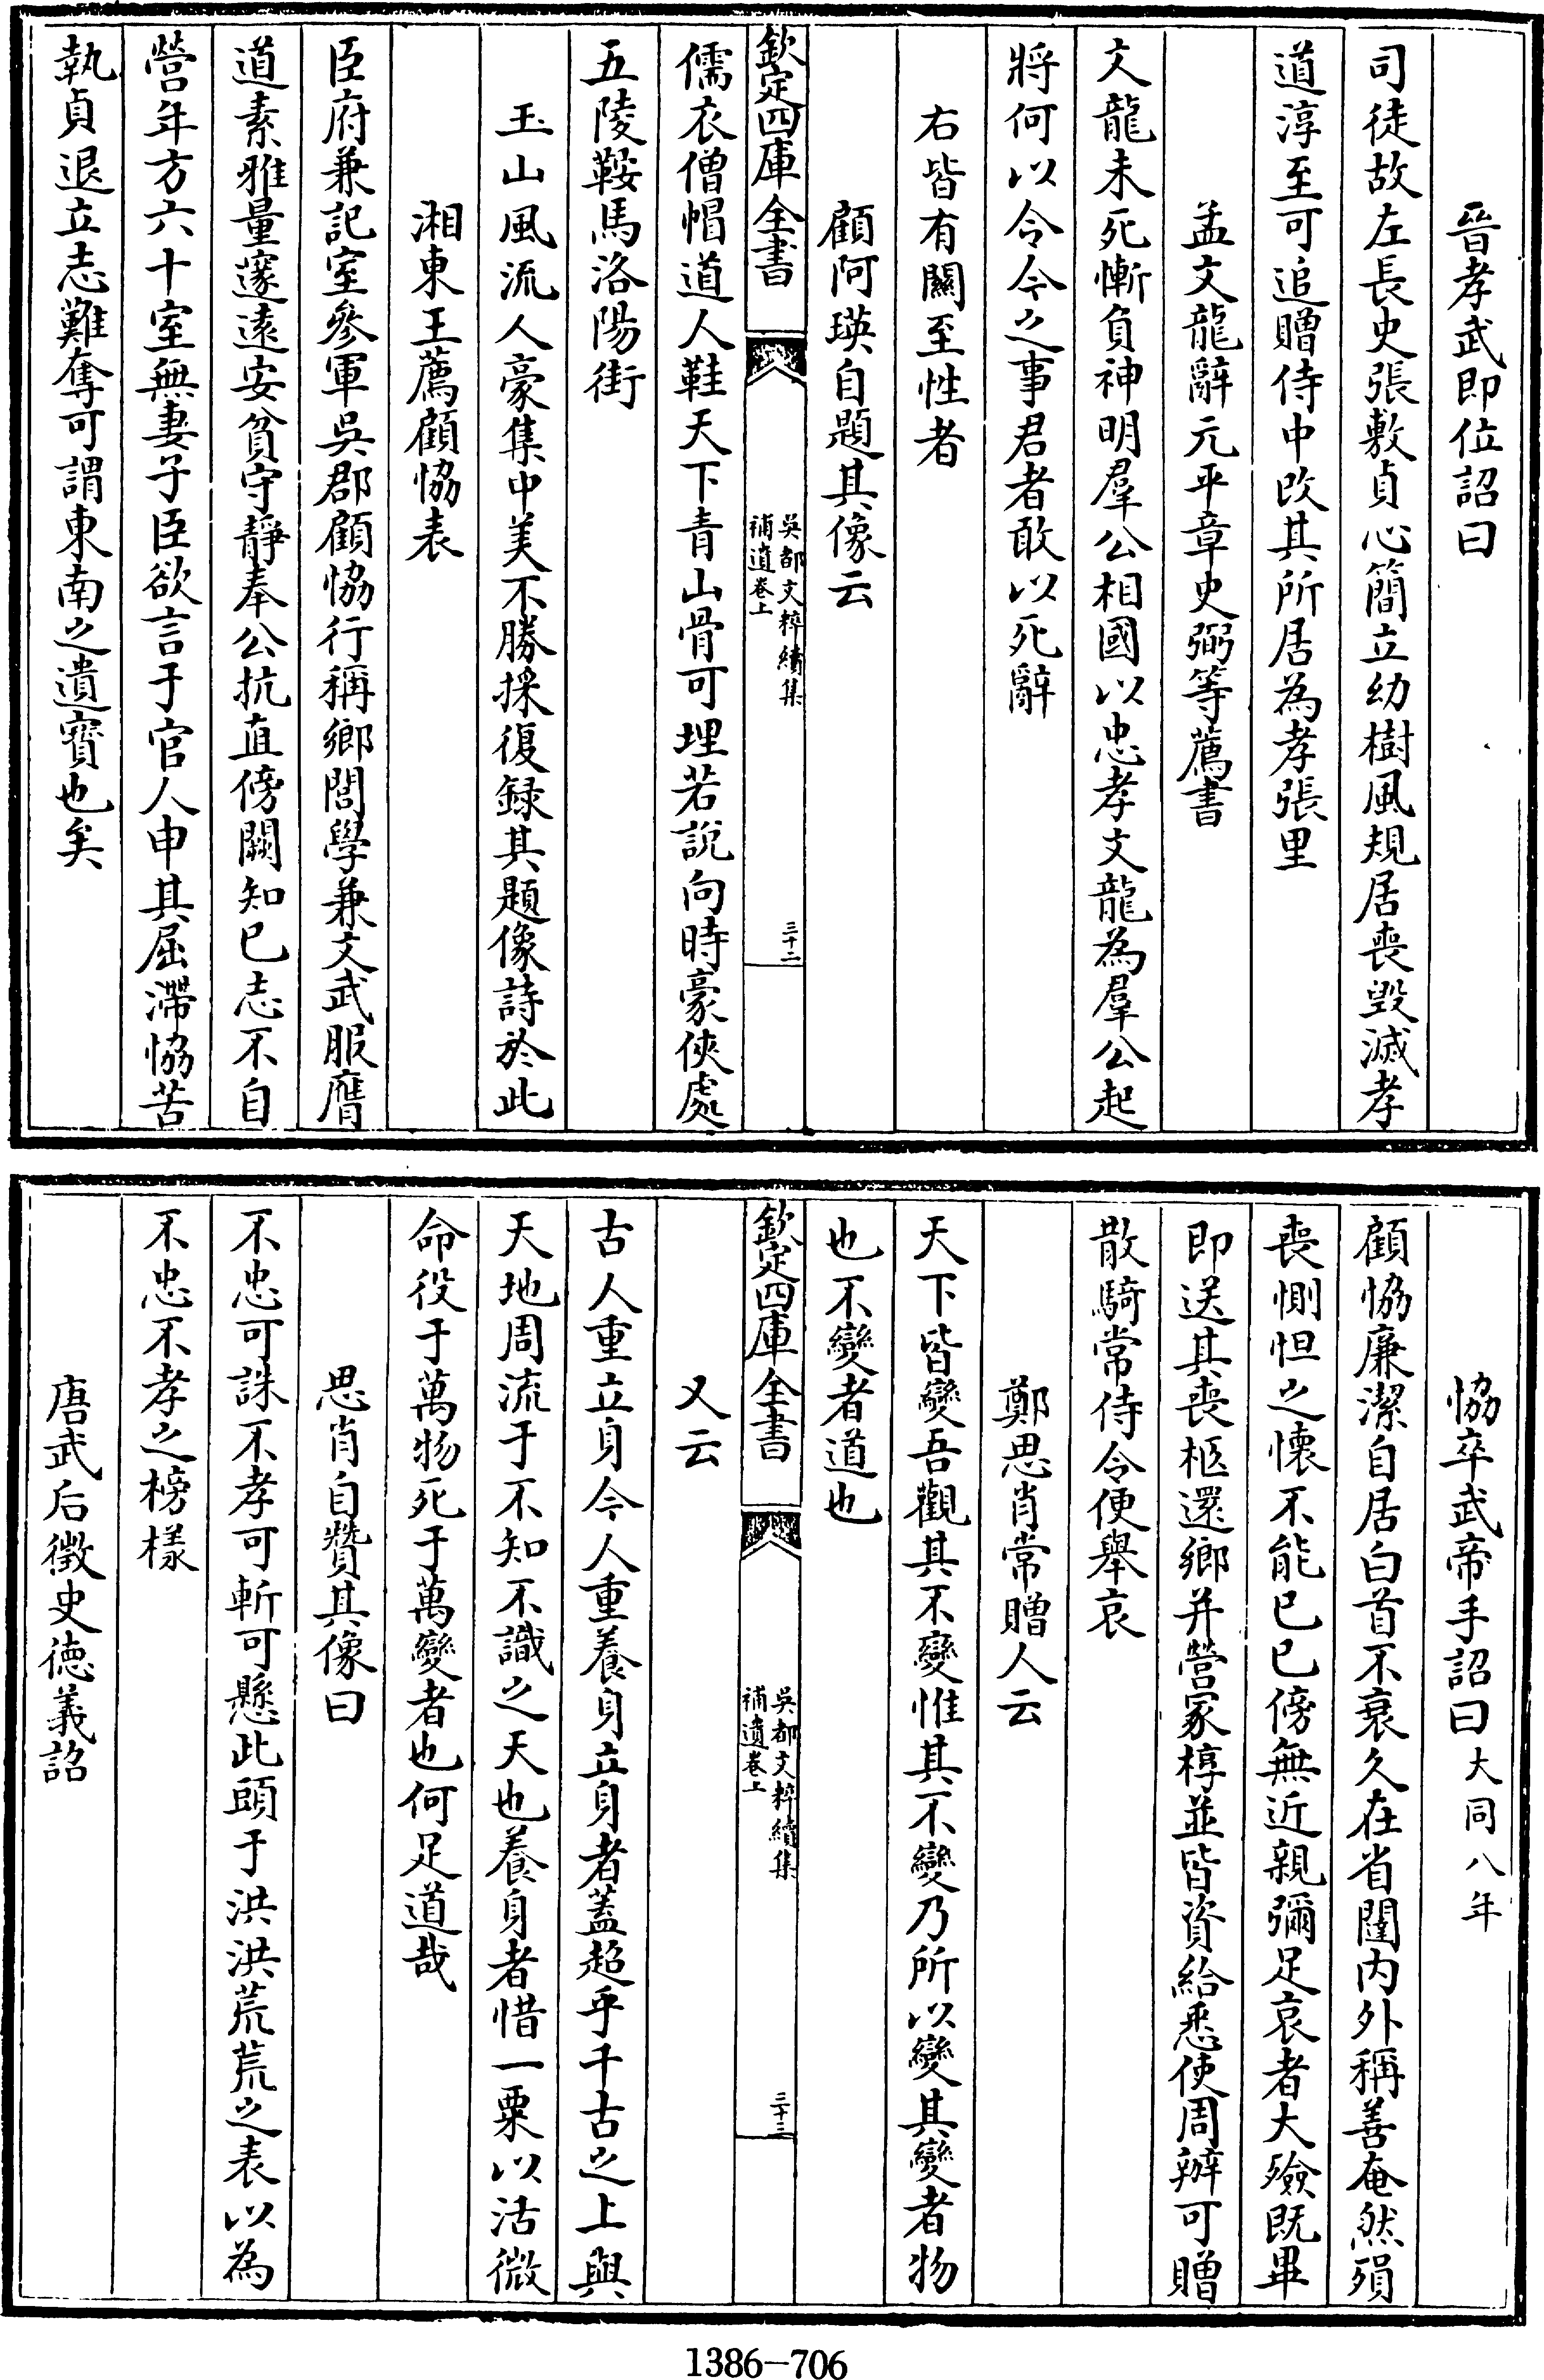 晉孝武即位詔曰
司徒故左長史張敷貞心簡立幼樹風規居喪毀滅孝
道淳至可追贈侍中改其所居為孝張里
孟文龍辭元平章史弼等薦書
文龍未死慚負神明羣公相國以忠孝文龍為羣公起
將何以令今之事君者敢以死辭
右皆有關至性者
顧阿瑛自題其像云
欽定四庫全書
吳都文粹續集
補遺卷上
三十二
儒衣僧帽道人鞋天下青山骨可埋若說向時豪俠處
五陵鞍馬洛陽街
玉山風流人豪集中美不勝採復録其題像詩於此
湘東王薦顧協表
臣府兼記室參軍吳郡顧協行稱鄉閭學兼文武服膺
道素雅量邃遠安貧守靜奉公抗直傍闕知已志不自
營年方六十室無妻子臣欲言于官人申其屈滯協苦
執貞退立志難奪可謂東南之遺寳也矣
協卒武帝手詔曰大同八年
顧協廉潔自居白首不衰久在省闥内外稱善奄然殞
喪惻怛之懷不能已已傍無近親彌足哀者大殮既畢
即送其喪柩還鄉并營冢椁並皆資給悉使周辦可贈
散騎常侍令便舉哀
鄭思肖常贈人云
天下皆變吾觀其不變惟其不變乃所以變其變者物
也不變者道也
欽定四庫全書
吳都文粹續集
補遺卷上
三十三
又云
古人重立身今人重養身立身者蓋超乎千古之上與
天地周流于不知不識之天也養身者惜一粟以活微
命役于萬物死于萬變者也何足道哉
思肖自贊其像曰
不忠可誅不孝可斬可懸此頭于洪洪荒荒之表以為
不忠不孝之榜樣
唐武后徵史德義詔
1386-706